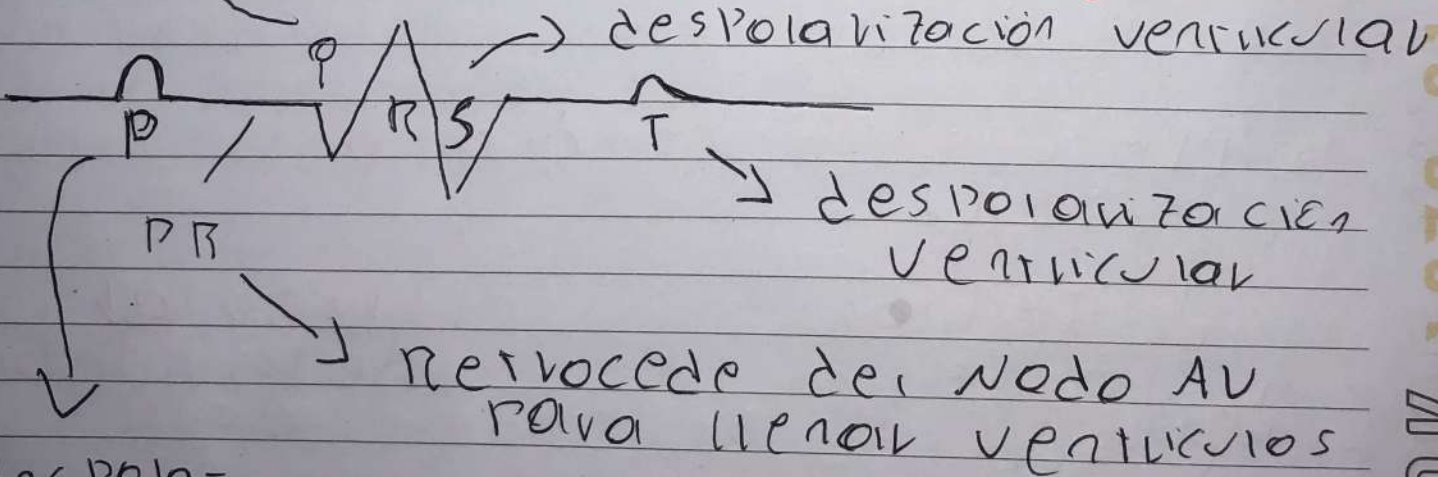 despolarización ventricular
P
Q
R
S
T
despolarización
ventricular
PR
Retrocede del Nodo AV
para llenar ventrículos